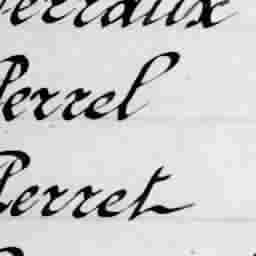 Perraux
Perrel
Perret